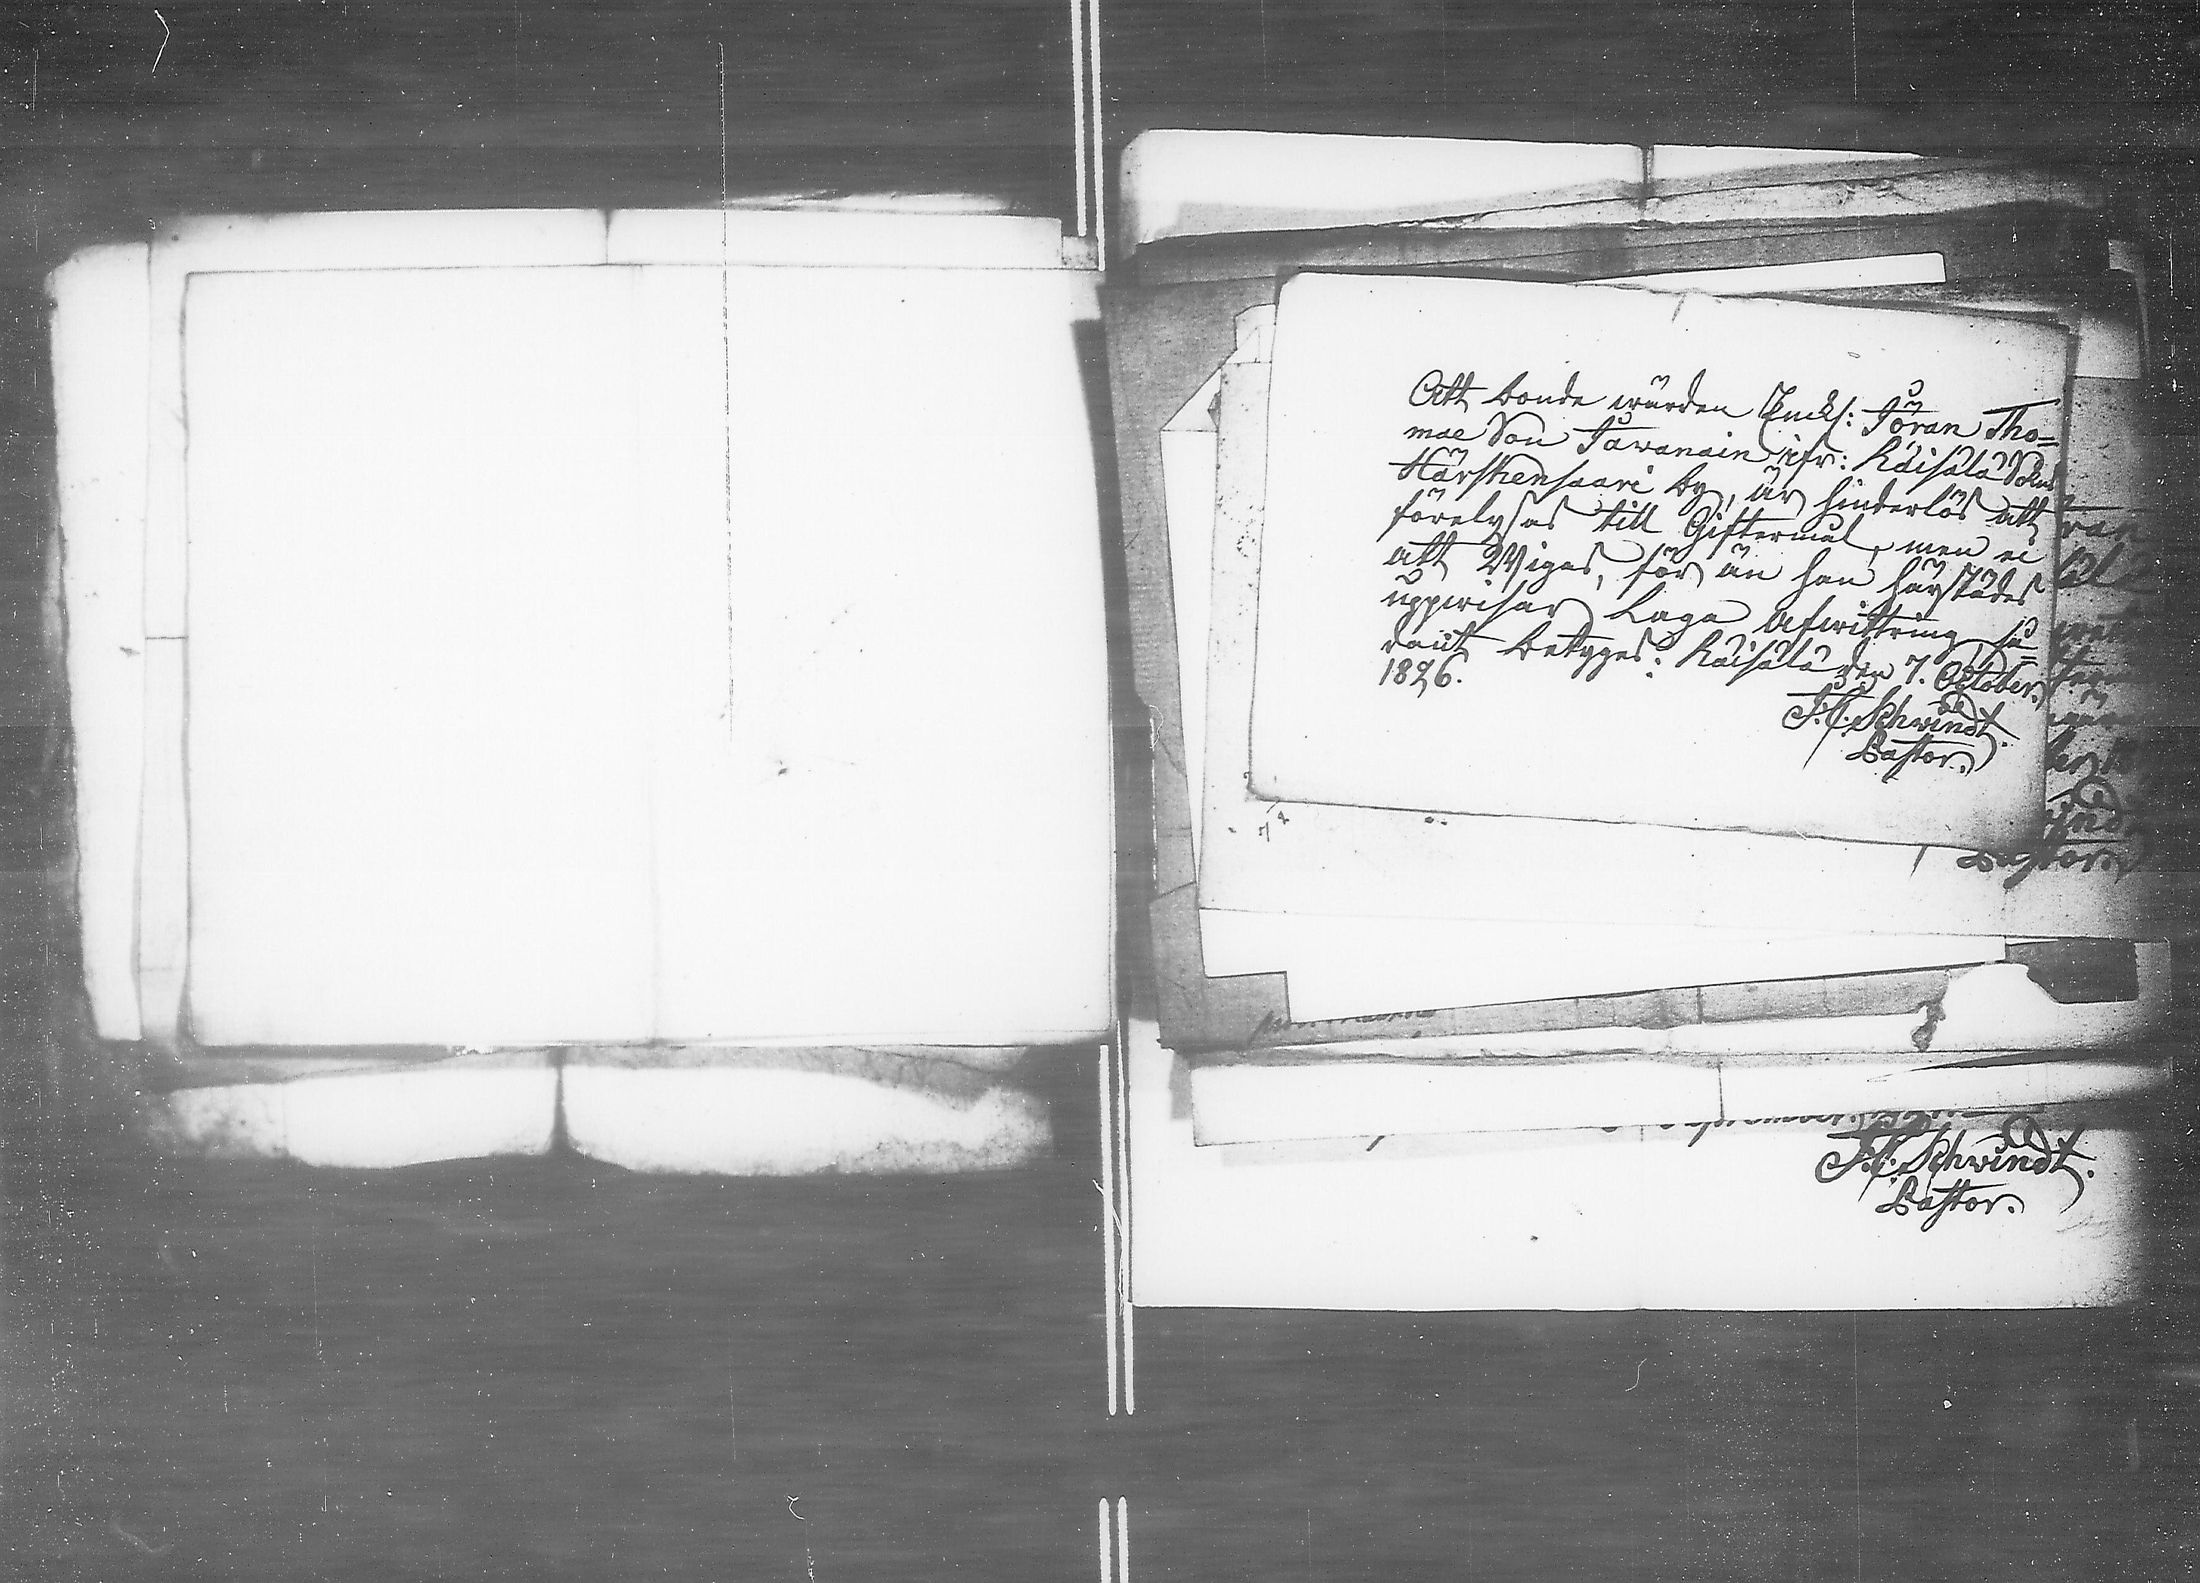 Att bonde wärden Enckl: Jöran Tho=
mae Son Tawanain ifr: Räisälä Sokns
Härskensaari by, är hinderlös att
förelysas till Giftermål, men ei
att Wigas, för än han härstädes
uppwisar Laga Afwittring så=
dant betyges. Räisälä den 7. October.
1826.
J. C. Schwindt.
Pastor.
Pastor.
September
J. C. Schwindt.
Pastor.